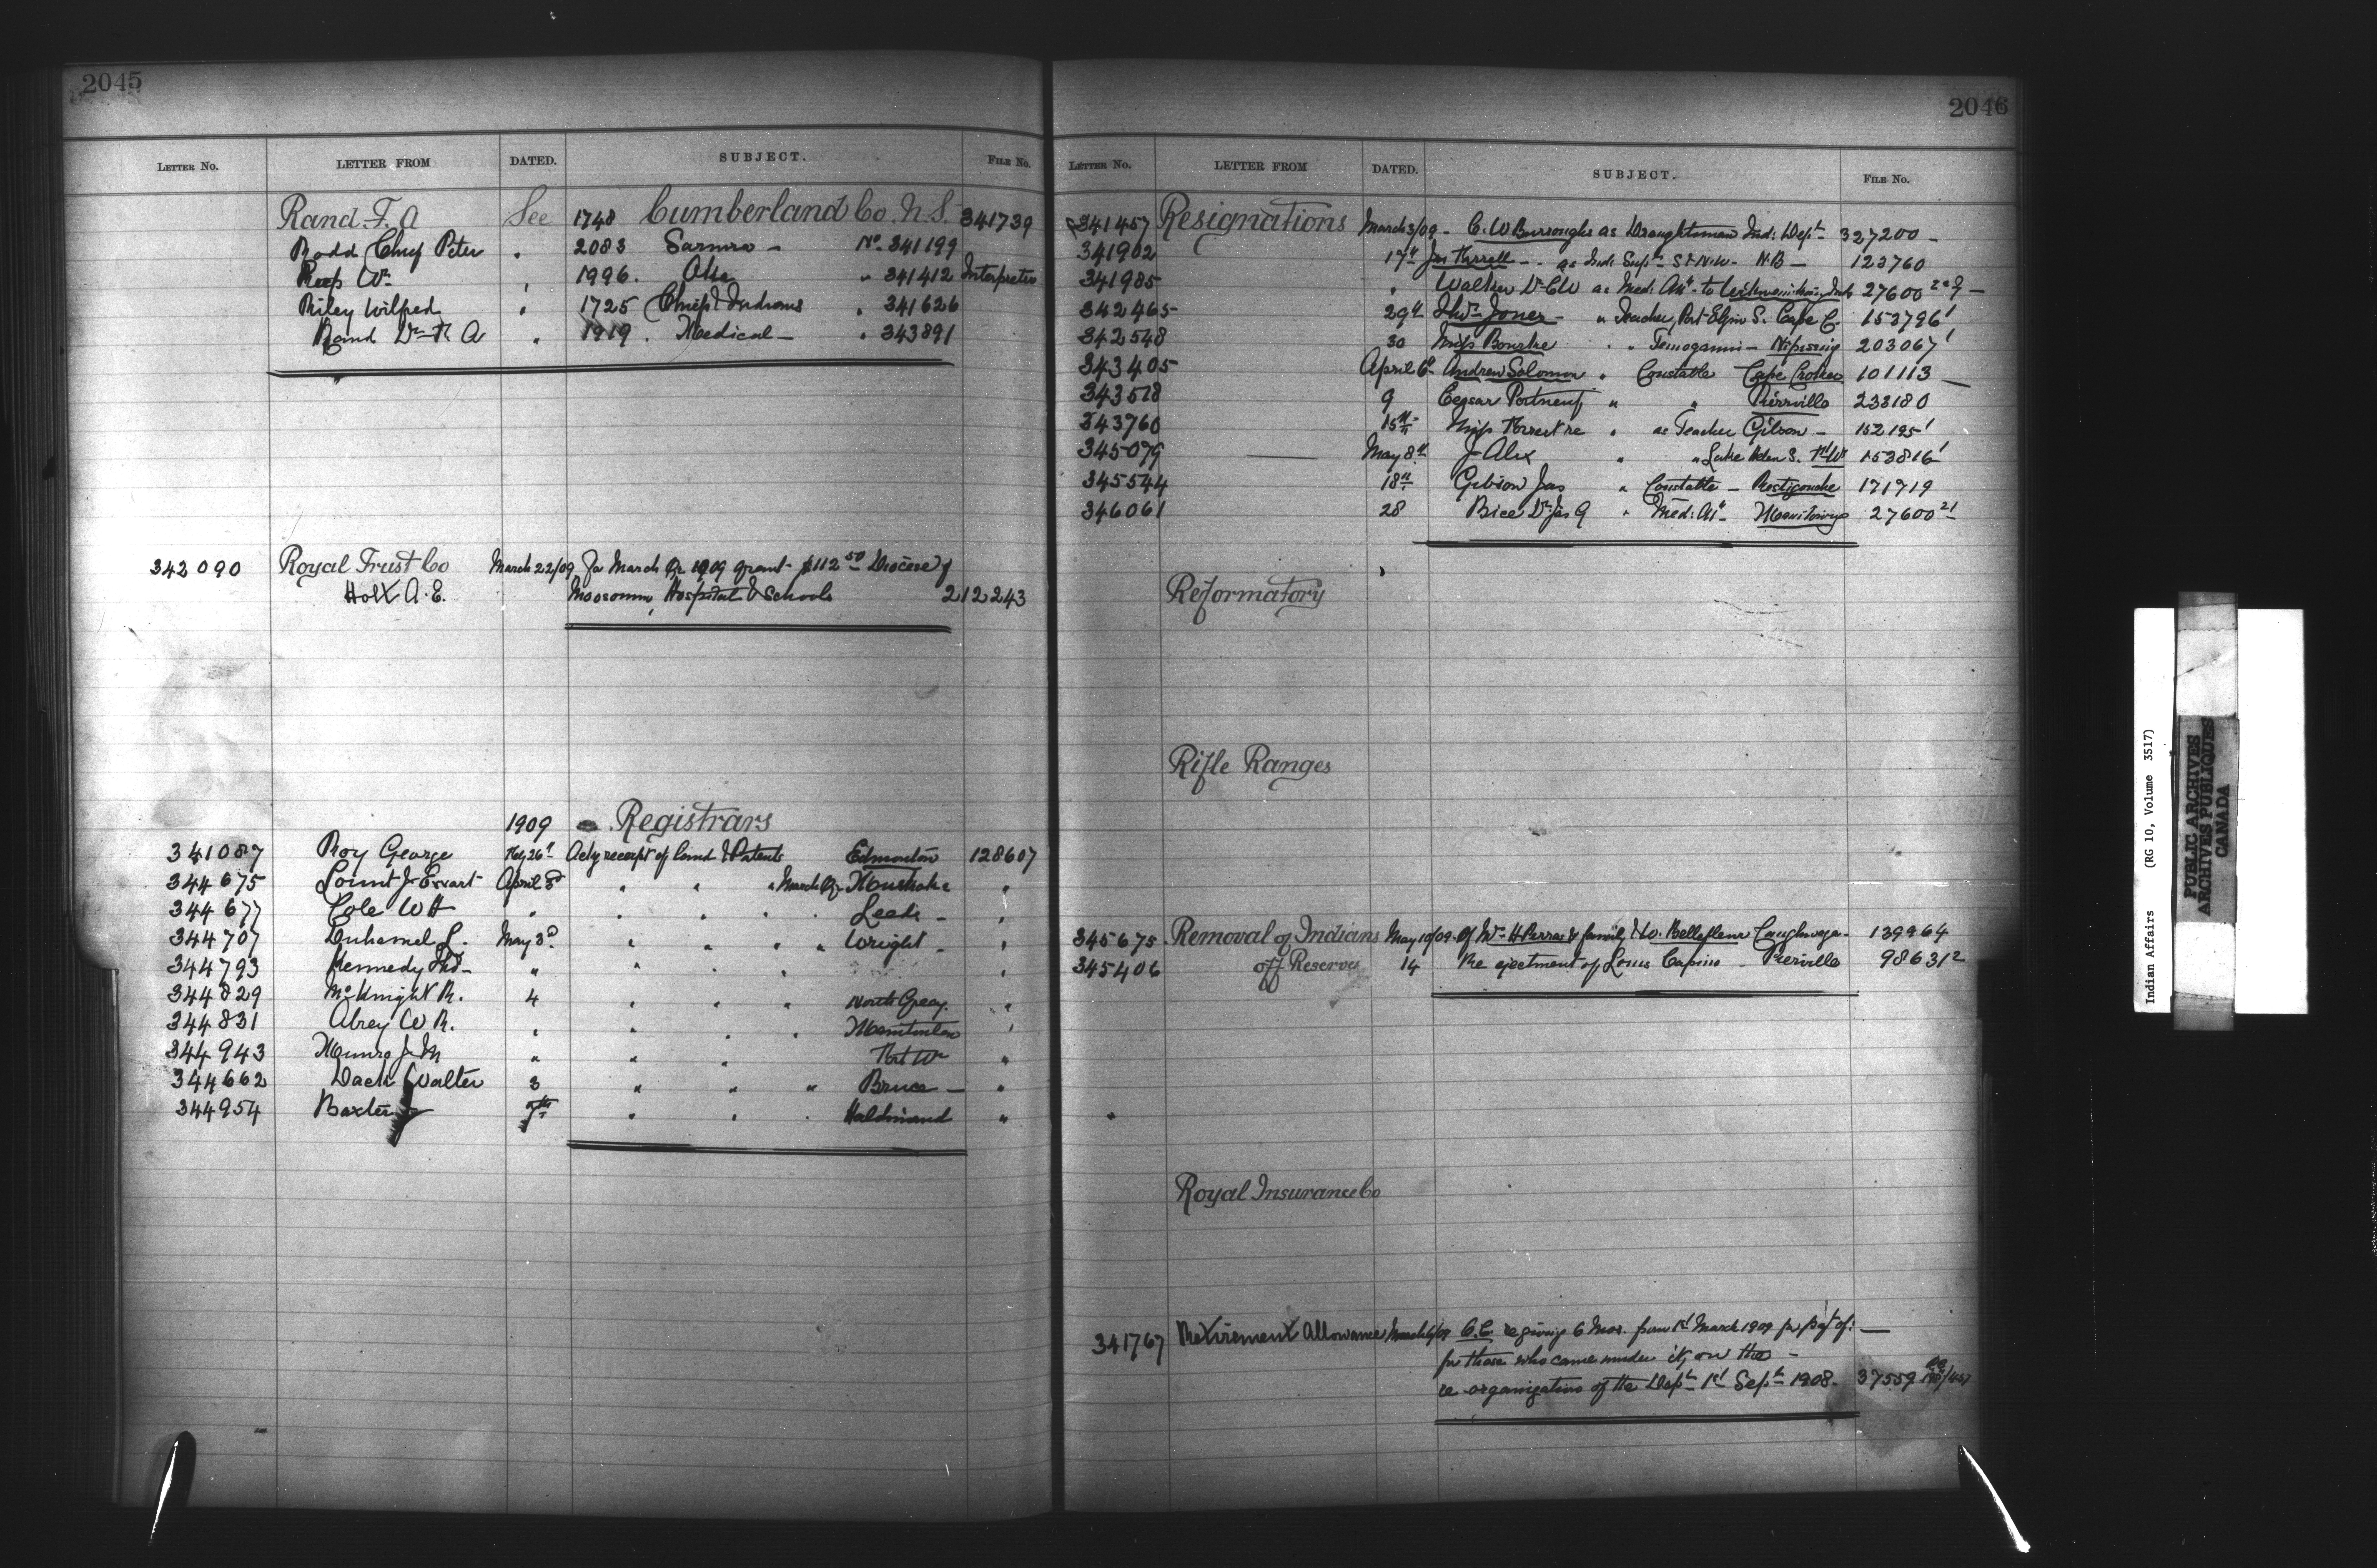 2045
LETTER No. LETTER FROM DATED. SUBJECT. FILE No.
Rand F. A See 1748 Cumberland Co. N.S. 341739
Rodd Chief Peter " 2083 Sarnia - No 341199
Wm " 1996. 341412 Interpreter
Riley Wilfred " 1725 Chiefs & Indians " 341626
Rand Dr R A " 1919. Medical - " 343891
342090 Royal Trust Co March 22/09 For March Qr 1909 grant $112 50 Diocese of
Holt A. E. Moosonee, Hospital & Schools 212243
1909 Registrars
341087 Roy George Feby 26" Ackg receipt of Land & Patents Edmonton 128607
344675 Lount J Ewart April 3d " " " March Qr Muskoka "
344677 Cole W H " " " " Leeds - "
344707 Duhamel L. May 3d " " " " Wright - "
344793 Kennedy " " " " "
344829 McKnight R. 4 " " " North Grey "
344831 Abrey W R. " " " " Manitoulin "
344943 Munro J M " " " Port Wm "
344662 Dack Walter 3 " " " Bruce - "
344954 Baxter J 7th " " " Haldimand "
2046
LETTER No. LETTER FROM DATED. SUBJECT. FILE No.
341457 Resignations March 3/09 - C. W Burroughs as Draughtsman Ind: Dept 327200 -
341902 17" Jas Farrell - - as Ind: Supt N.B - 123760
341985 " Walker Dr C W as Med: Att to 27600
342465 29" Jones - " Teacher, Port Elgin S. Cape C. 153796 1
342548 30 Miss Bourke " " Temogamin - Nipissing 203067 1
343405 April 6" Andrew Solomon " Constable Cape Croker 101113 -
343518 9 Ceasar Portneuf " " Pierrville 233180
343760 15th Miss " as Teacher Gibson - 152195 1
345079 May 8" J Alex " " Lake Helen S. Ft Wm 153816 1
345544 18th Gibson Jas " Constable - Restigouche 171719
346061 28 Bice Dr Jas G " Med: Att - Manitowng 27600 21
Reformatory
Rifle Ranges
345675 Removal of Indians May 10/09 - Of Mr H Perras & family & W. Bellefleur Caughnaga - 139964
345406 off Reserves 14 Re ejectment of Louis Capino - Pierville 98631 2
Royal Insurance Co
341767 Retirement Allowance March 6/09 O.C. re giving 6 Mos. from 1st March 1909 for pay't of: -
for those who came under it, on the -
re-organization of the Dept 1st Sept 1908. 37559
Indian Affairs (RG 10, Volume 3517)
PUBLIC ARCHIVES
ARCHIVES PUBLIQUES
CANADA